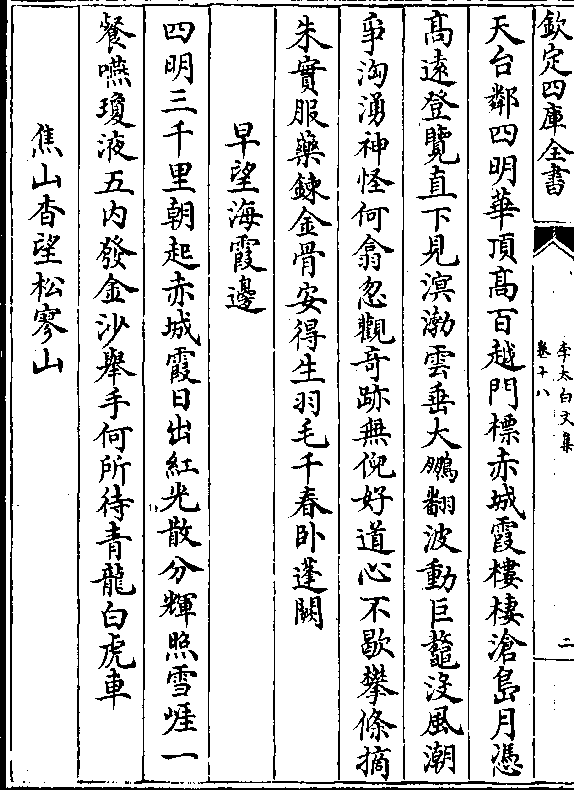 欽定四庫全書
李太白文集
卷十八
二
天台鄰四明華頂髙百越門標赤城霞樓棲滄島月憑
髙逺登覽直下見溟渤雲垂大鵬翻波動巨鼇沒風潮
爭洶湧神怪何翕忽觀奇跡無倪好道心不歇攀條摘
朱實服藥鍊金骨安得生羽毛千春卧蓬闕
早望海霞邊
四明三千里朝起赤城霞日出紅光散分輝照雪崖一
餐嚥瓊液五内發金沙舉手何所待青龍白虎車
焦山杳望松寥山